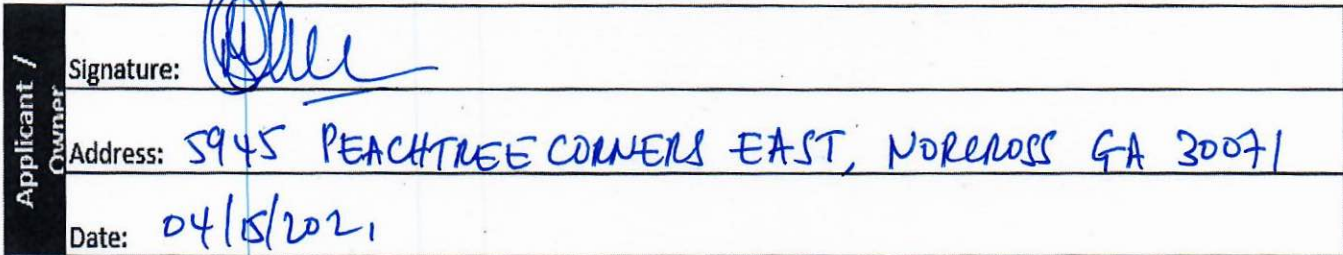 Applicant / Owner
Signature:
Address: 5945 PEACHTREE CORNERS EAST, NORCROSS GA 30071
Date: 04/15/2021